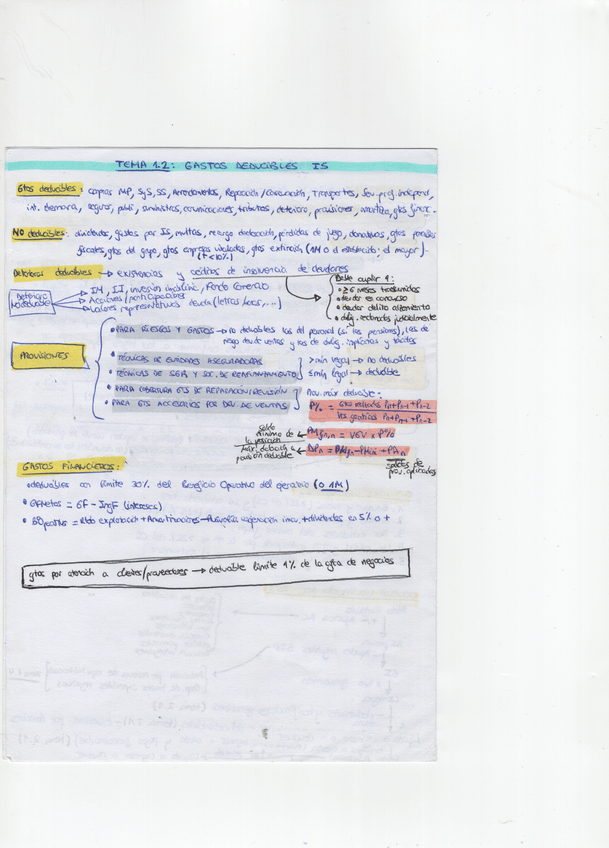 TEMA 1.2: GASTOS DEDUCIBLES IS
Gtos deducibles: compras MP, SyS, SS, Arrendamientos, Reparación/conservación, Transportes, Serv. prof. independ,
int. demora, seguros, publi, suministros, comunicaciones, tributos, deterioro, provisiones, amortiza, gtos financ.
NO deducibles: dividendos, gastos por IS, multas, recargo declaración, pérdidas de juego, donativos, gtos paraísos
fiscales, gtos del grupo, gtos empresas vinculadas, gtos extinción (1M o el establecido: el mayor).
(t<10%)
Deterioros deducibles → existencias y créditos de insolvencia de deudores
Deterioro No deducible
IM, II, inversión inmobiliaria, Fondo Comercio
Acciones/participaciones
valores representativos deuda (letras, bonos,...)
Debe cumplir 1:
• ≥ 6 meses transcurridos
• deudor es concurso
• deudor delito alzamiento
• oblig. reclamadas judicialmente
PROVISIONES
• PARA RIESGOS Y GASTOS → no deducibles las del personal (sí las pensiones), las de
riesgo devol. ventas y las de oblig. implícitas y tácitas
• TÉCNICAS DE ENTIDADES ASEGURADORAS
• TÉCNICAS DE SGR Y SOC. DE REAFIANZAMIENTO
> mín legal → no deducibles
≤ mín legal → deducible
• PARA COBERTURA GTS DE REPARACIÓN/REVISIÓN
• PARA GTS ACCESORIOS POR DEV. DE VENTAS
Prov. máx deducible:
P% = Gtos realizados Pn+Pn-1+Pn-2
Vtas garantías Pn+Pn-1+Pn-2
saldo
máximo de
la provisión
máx. dotación a
provisión deducible
saldos de
prov. aplicadas
GASTOS FINANCIEROS:
• deducibles con límite 30% del Beneficio Operativo del ejercicio (o 1M)
• GFNetos = GF - IngF (intereses)
• BOperativo = Rtdo explotación + Amortizaciones - + dividendos es 5% o +
gtos por atención a clientes/proveedores → deducible límite 1% de la cifra de negocios